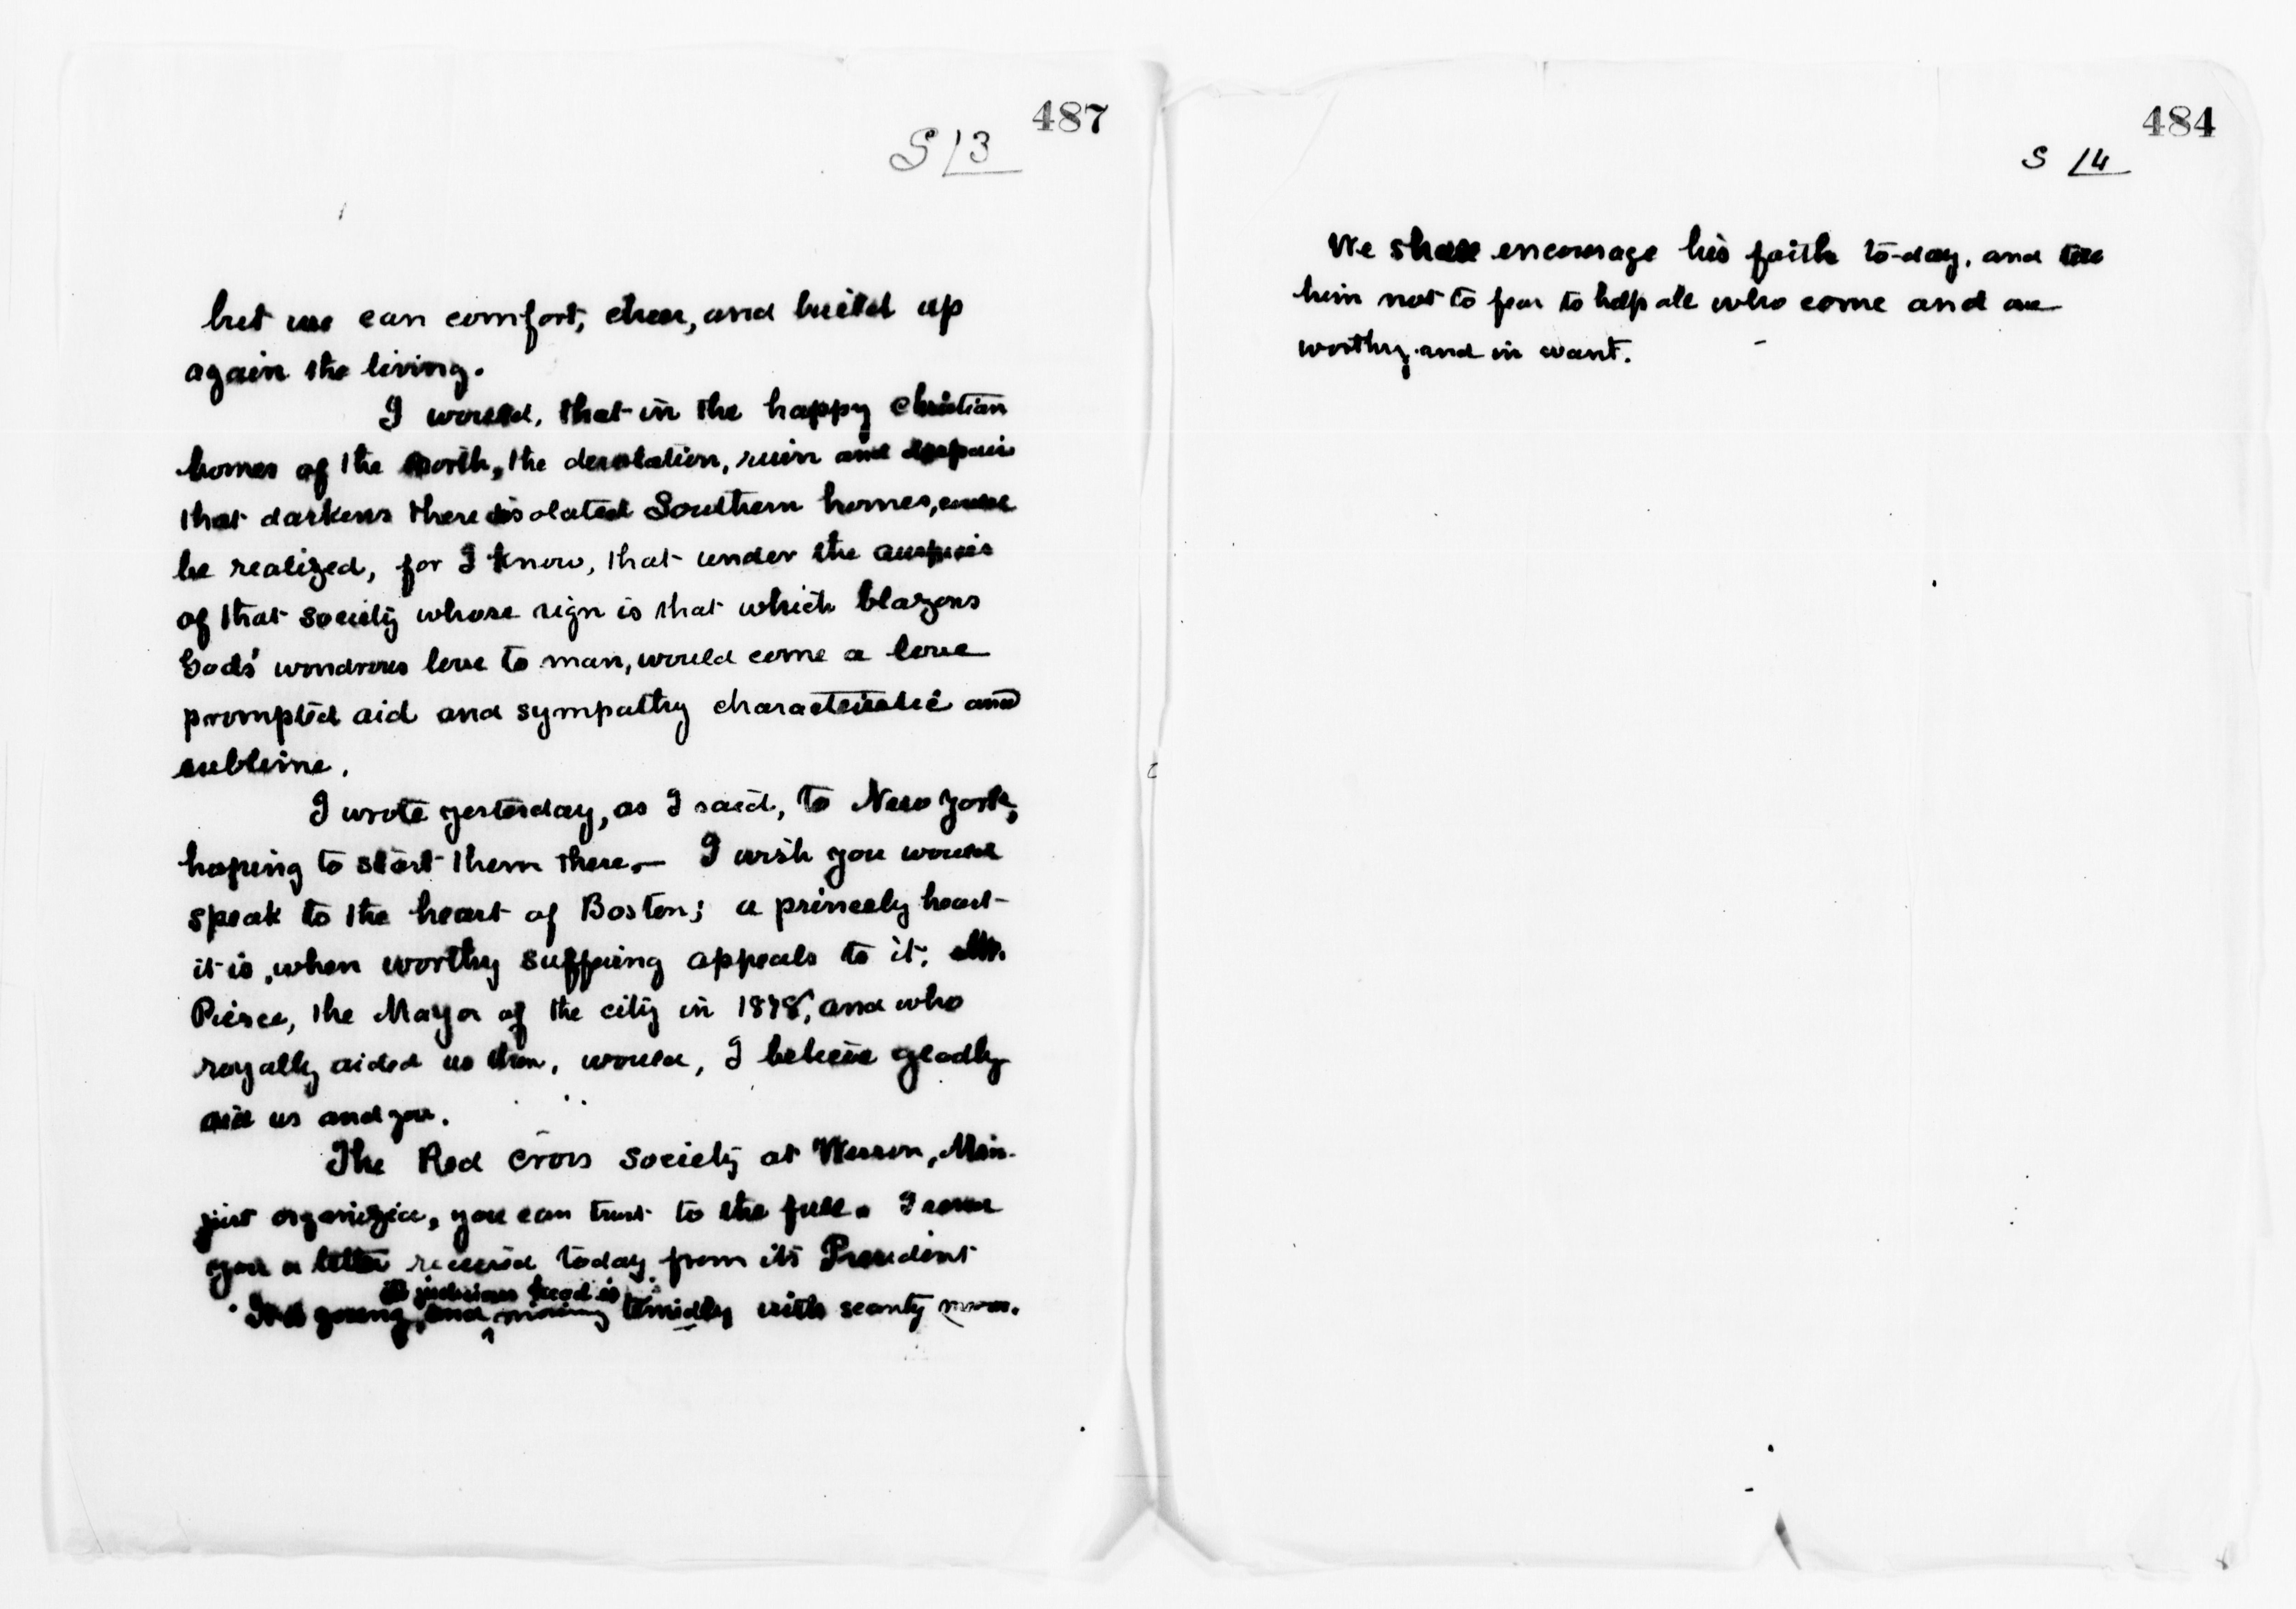 487
S /3
but we can comfort, cheer, and build up
again the living.
I would, that in the happy Christian
homes of the north, the desolation, ruin and despair
that darkens these isolated Southern homes, could
be realized, for I know, that under the auspices
of that society whose sign is that which blazons
Gods' wondrous love to man, would come a love
prompted aid and sympathy characteristic and
sublime.
I wrote yesterday, as I said, to New York,
hoping to start them there. — I wish you would
speak to the heart of Boston; a princely heart
it is, when worthy suffering appeals to it. Mr.
Pierce, the Mayor of the city in 1878, and who
royally aided us then, would, I believe gladly
aid us and you.
The Red Cross Society at Warren, Min.
just organized, you can trust to the full. I send
you a letter received today from its President
judicious head is
It is young, and moving timidly with scanty
484
S /4
We shall encourage his faith to-day, and tell
him not to fear to help all who come and are
worthy and in want.